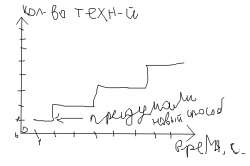 Кол-во техн-й
придумали
новый способ
время, с.